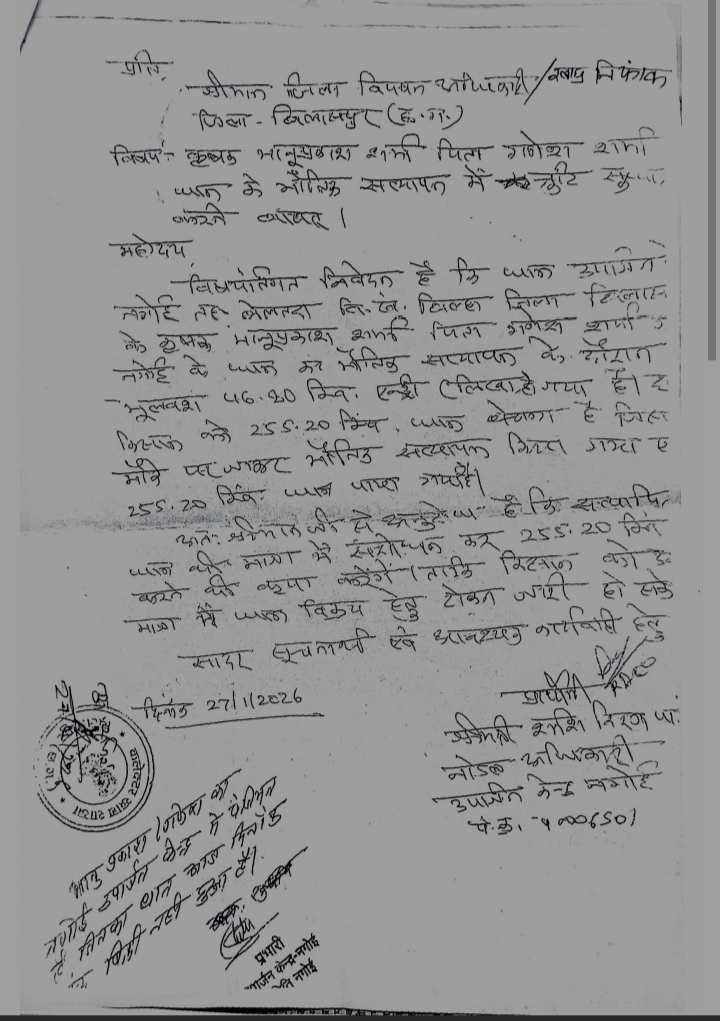 प्रति,
श्रीमान जिला विपणन अधिकारी/खाद्य नियंत्रक
जिला - बिलासपुर (छ.ग.)
विषय:- कृषक भानुप्रकाश शर्मा पिता गणेश शर्मा
धान के भौतिक सत्यापन में त्रुटि
करने बाबत।
महोदय
विषयांतर्गत निवेदन है कि धान उपार्जन
नगोई तह. बेलतरा वि.खं. बिल्हा जिला
के कृषक भानुप्रकाश शर्मा पिता गणेश शर्मा
नगोई के धान का भौतिक सत्यापन के दौरान
भूलवश 46.20 क्वि. एन्ट्री (लिखा) हो गया है।
किसान को 255.20 क्वि. धान बेचना है
मौके पर जाकर भौतिक सत्यापन किया गया
255.20 क्वि. धान पाया गया है।
अतः श्रीमान जी से अनुरोध है कि
धान की मात्रा में संशोधन कर 255.20 क्वि
करने की कृपा करेंगे। ताकि किसान को
मात्रा में धान विक्रय हेतु टोकन जारी हो सके
सादर सूचनार्थ एवं आवश्यक कार्यवाही हेतु
दिनांक 27/1/2026
प्रार्थी
श्रीमती शशि किरण
नोडल अधिकारी
उपार्जन केन्द्र नगोई
भानु प्रकाश / गणेश का
नगोई उपार्जन केन्द्र में पंजीयन
है जिनका धान आज दिनांक
बिक्री नहीं हुआ है।
प्रभारी
उपार्जन केन्द्र-नगोई
नगोई